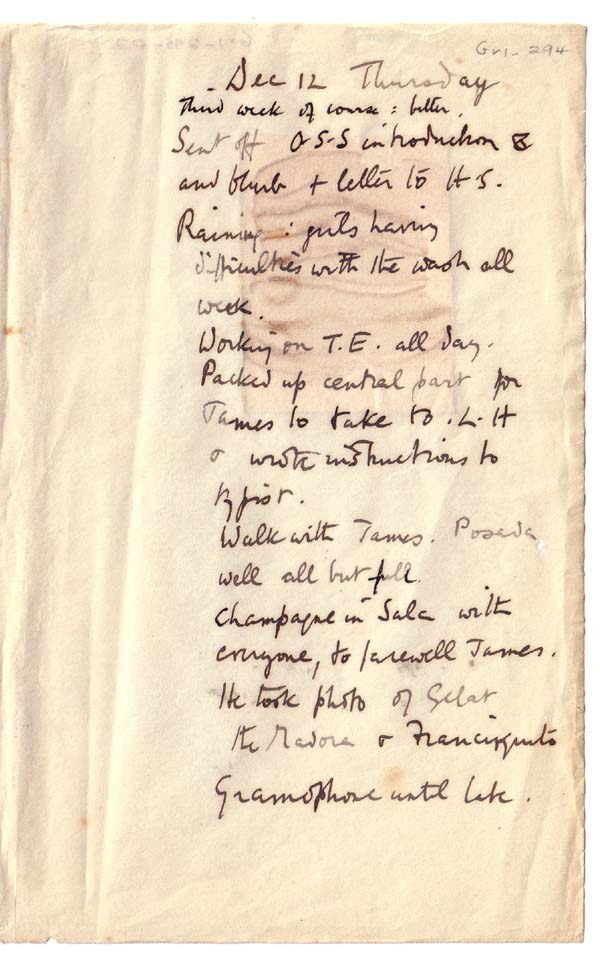 Gr1-294
Dec 12 Thursday
Third week of course : better.
Sent off O-S-S introduction &
and blurb + letter to H S.
Raining : girls having
difficulties with the wash all
week.
Working on T.E. all day.
Packed up central part for
James to take to L-H
& wrote instructions to
typist.
Walk with James. Posada
well all but full.
Champagne in Sala with
everyone, to farewell James.
He took photo of Gelat
the Madora & Francisquito
Gramophone until late.